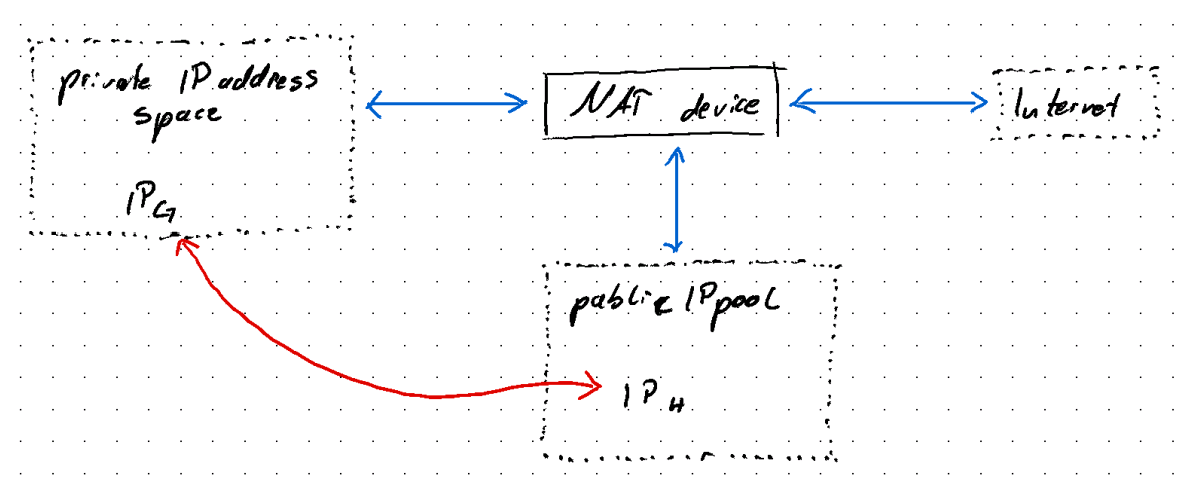 private IP address
space
IP_G
NAT device
Internet
public IP pool
IP_H